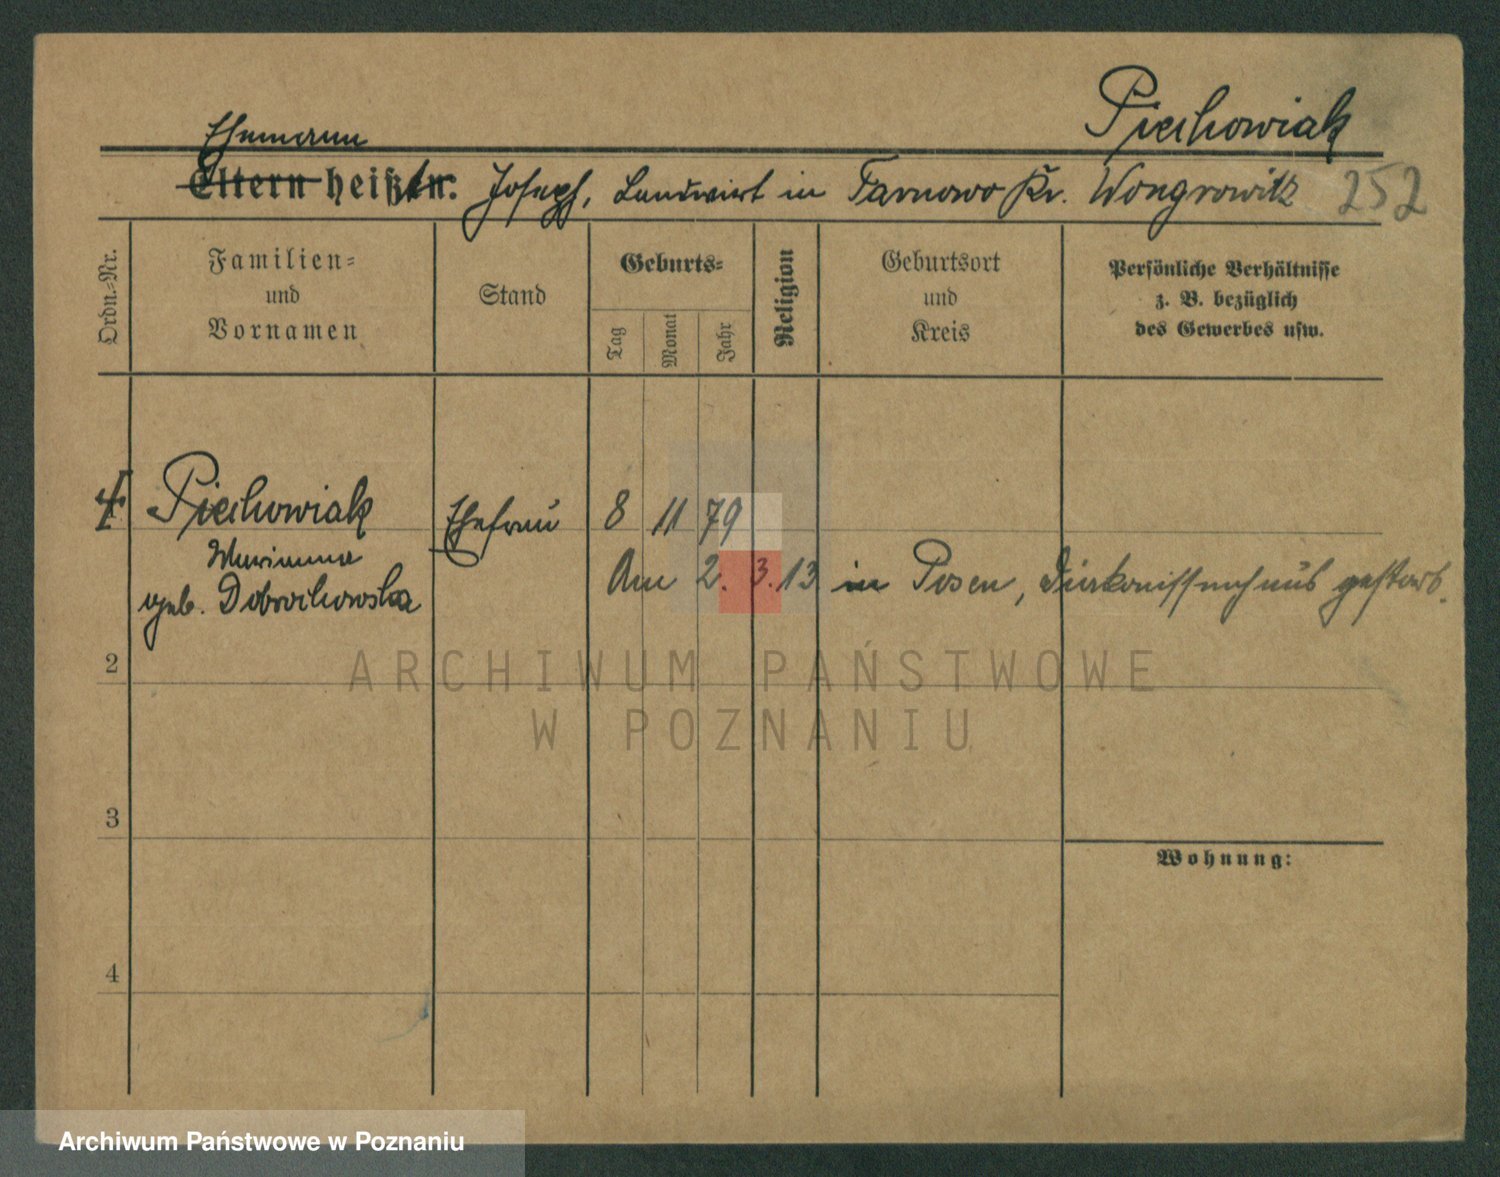 Piechowiak
Ehemann
Eltern heißt: Joseph, Landwirt in Tarnowo Kr. Wongrowitz 252
Ordn.-Nr.
Familien-
und
Vornamen
Stand
Geburts-
Tag
Monat
Jahr
Religion
Geburtsort
und
Kreis
Persönliche Verhältnisse
z. B. bezüglich
des Gewerbes usw.
Piechowiak Ehefrau 8 11 79
Marianna
geb. Dobrochowska
Am 2. 3. 13 in Posen, Diakonissenhaus gestorb.
2
ARCHIWUM PAŃSTWOWE
W POZNANIU
3
Wohnung:
4
Archiwum Państwowe w Poznaniu